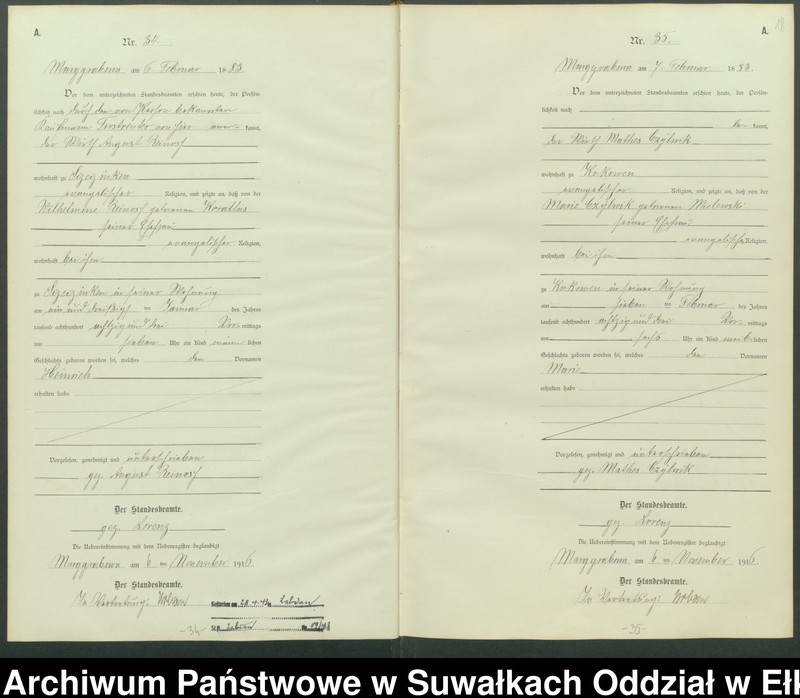 A.
Nr. 34.
Marggrabowa am 6 Februar 1883
Vor dem unterzeichneten Standesbeamten erschien heute, der Persön-
lichkeit nach durch den von Person bekannten
Kaufmann von hier aner kannt,
der Wirth August
wohnhaft zu
evangelischer Religion, und zeigte an, daß von der
Wilhelmine geborenen
seiner Ehefrau
evangelischer Religion,
wohnhaft bei ihm
zu in seiner Wohnung
am ein und dreißigsten Januar des Jahres
tausend achthundert achtzig und drei Vor mittags
um sieben Uhr ein Kind männ lichen
Geschlechts geboren worden sei, welches den Vornamen
Heinrich
erhalten habe
Vorgelesen, genehmigt und unterschrieben
gez. August
Der Standesbeamte.
gez. Lorenz
Die Uebereinstimmung mit dem Nebenregister beglaubigt
Marggrabowa am 6 ten November 1916
Der Standesbeamte.
In Vertretung: Urban
-34-
18
A.
Nr. 35.
Marggrabowa am 7. Februar 1883
Vor dem unterzeichneten Standesbeamten erschien heute, der Persön-
lichkeit nach
be kannt,
der Wirth Mathes Czylwik
wohnhaft zu Kukowen
evangelischer Religion, und zeigte an, daß von der
Marie Czylwik geborenen
seiner Ehefrau
evangelischer Religion,
wohnhaft bei ihm
zu Kukowen in seiner Wohnung
am sieben ten Februar des Jahres
tausend achthundert achtzig und drei Vor mittags
um sechs Uhr ein Kind weib lichen
Geschlechts geboren worden sei, welches den Vornamen
Marie
erhalten habe
Vorgelesen, genehmigt und unterschrieben
gez. Mathes Czylwik
Der Standesbeamte.
gez. Lorenz
Die Uebereinstimmung mit dem Nebenregister beglaubigt
Marggrabowa am 6 ten November 1916
Der Standesbeamte.
In Vertretung: Urban
-35-
Archiwum Państwowe w Suwałkach Oddział w Eł